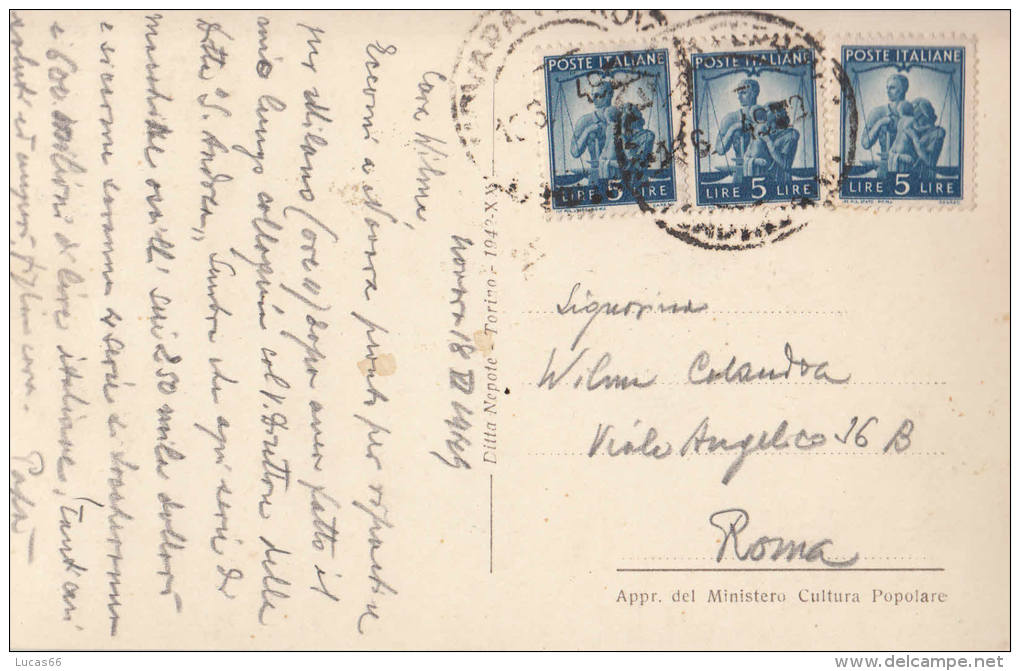 Novara 18 VI 1949
Cara Wilma,
Eccomi a Novara pronto per ripartire
per Milano (ore 11) dopo aver fatto il
mio lungo colloquio col V. Direttore delle
Dette "S. Andrea„ che ogni serie di
macchine 250 mila dollari
e siccome saranno 4 serie di
600 milioni di lire italiane, Tanti cari
saluti ed auguri figlia cara. Papà
Ditta Nepote - Torino - 1942-XX
POSTE ITALIANE
LIRE 5 LIRE
POSTE ITALIANE
LIRE 5 LIRE
POSTE ITALIANE
LIRE 5 LIRE
Signorina
Wilma Calandra
Viale Angelico 36 B
Roma
Appr. del Ministero Cultura Popolare
Lucas66
www.delcampe.net